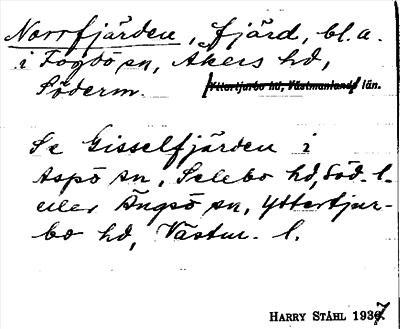 Norrfjärden, fjärd, bl. a.
i Fogdö sn, Åkers hd,
Söderm. Yttertjurbo hd, Västmanlands län.
Se Gisselfjärden i
Aspö sn, Selebo hd, Söd. l.
eller Ängsö sn, Yttertjur-
bo hd, Västm. l.
HARRY STÅHL 1937